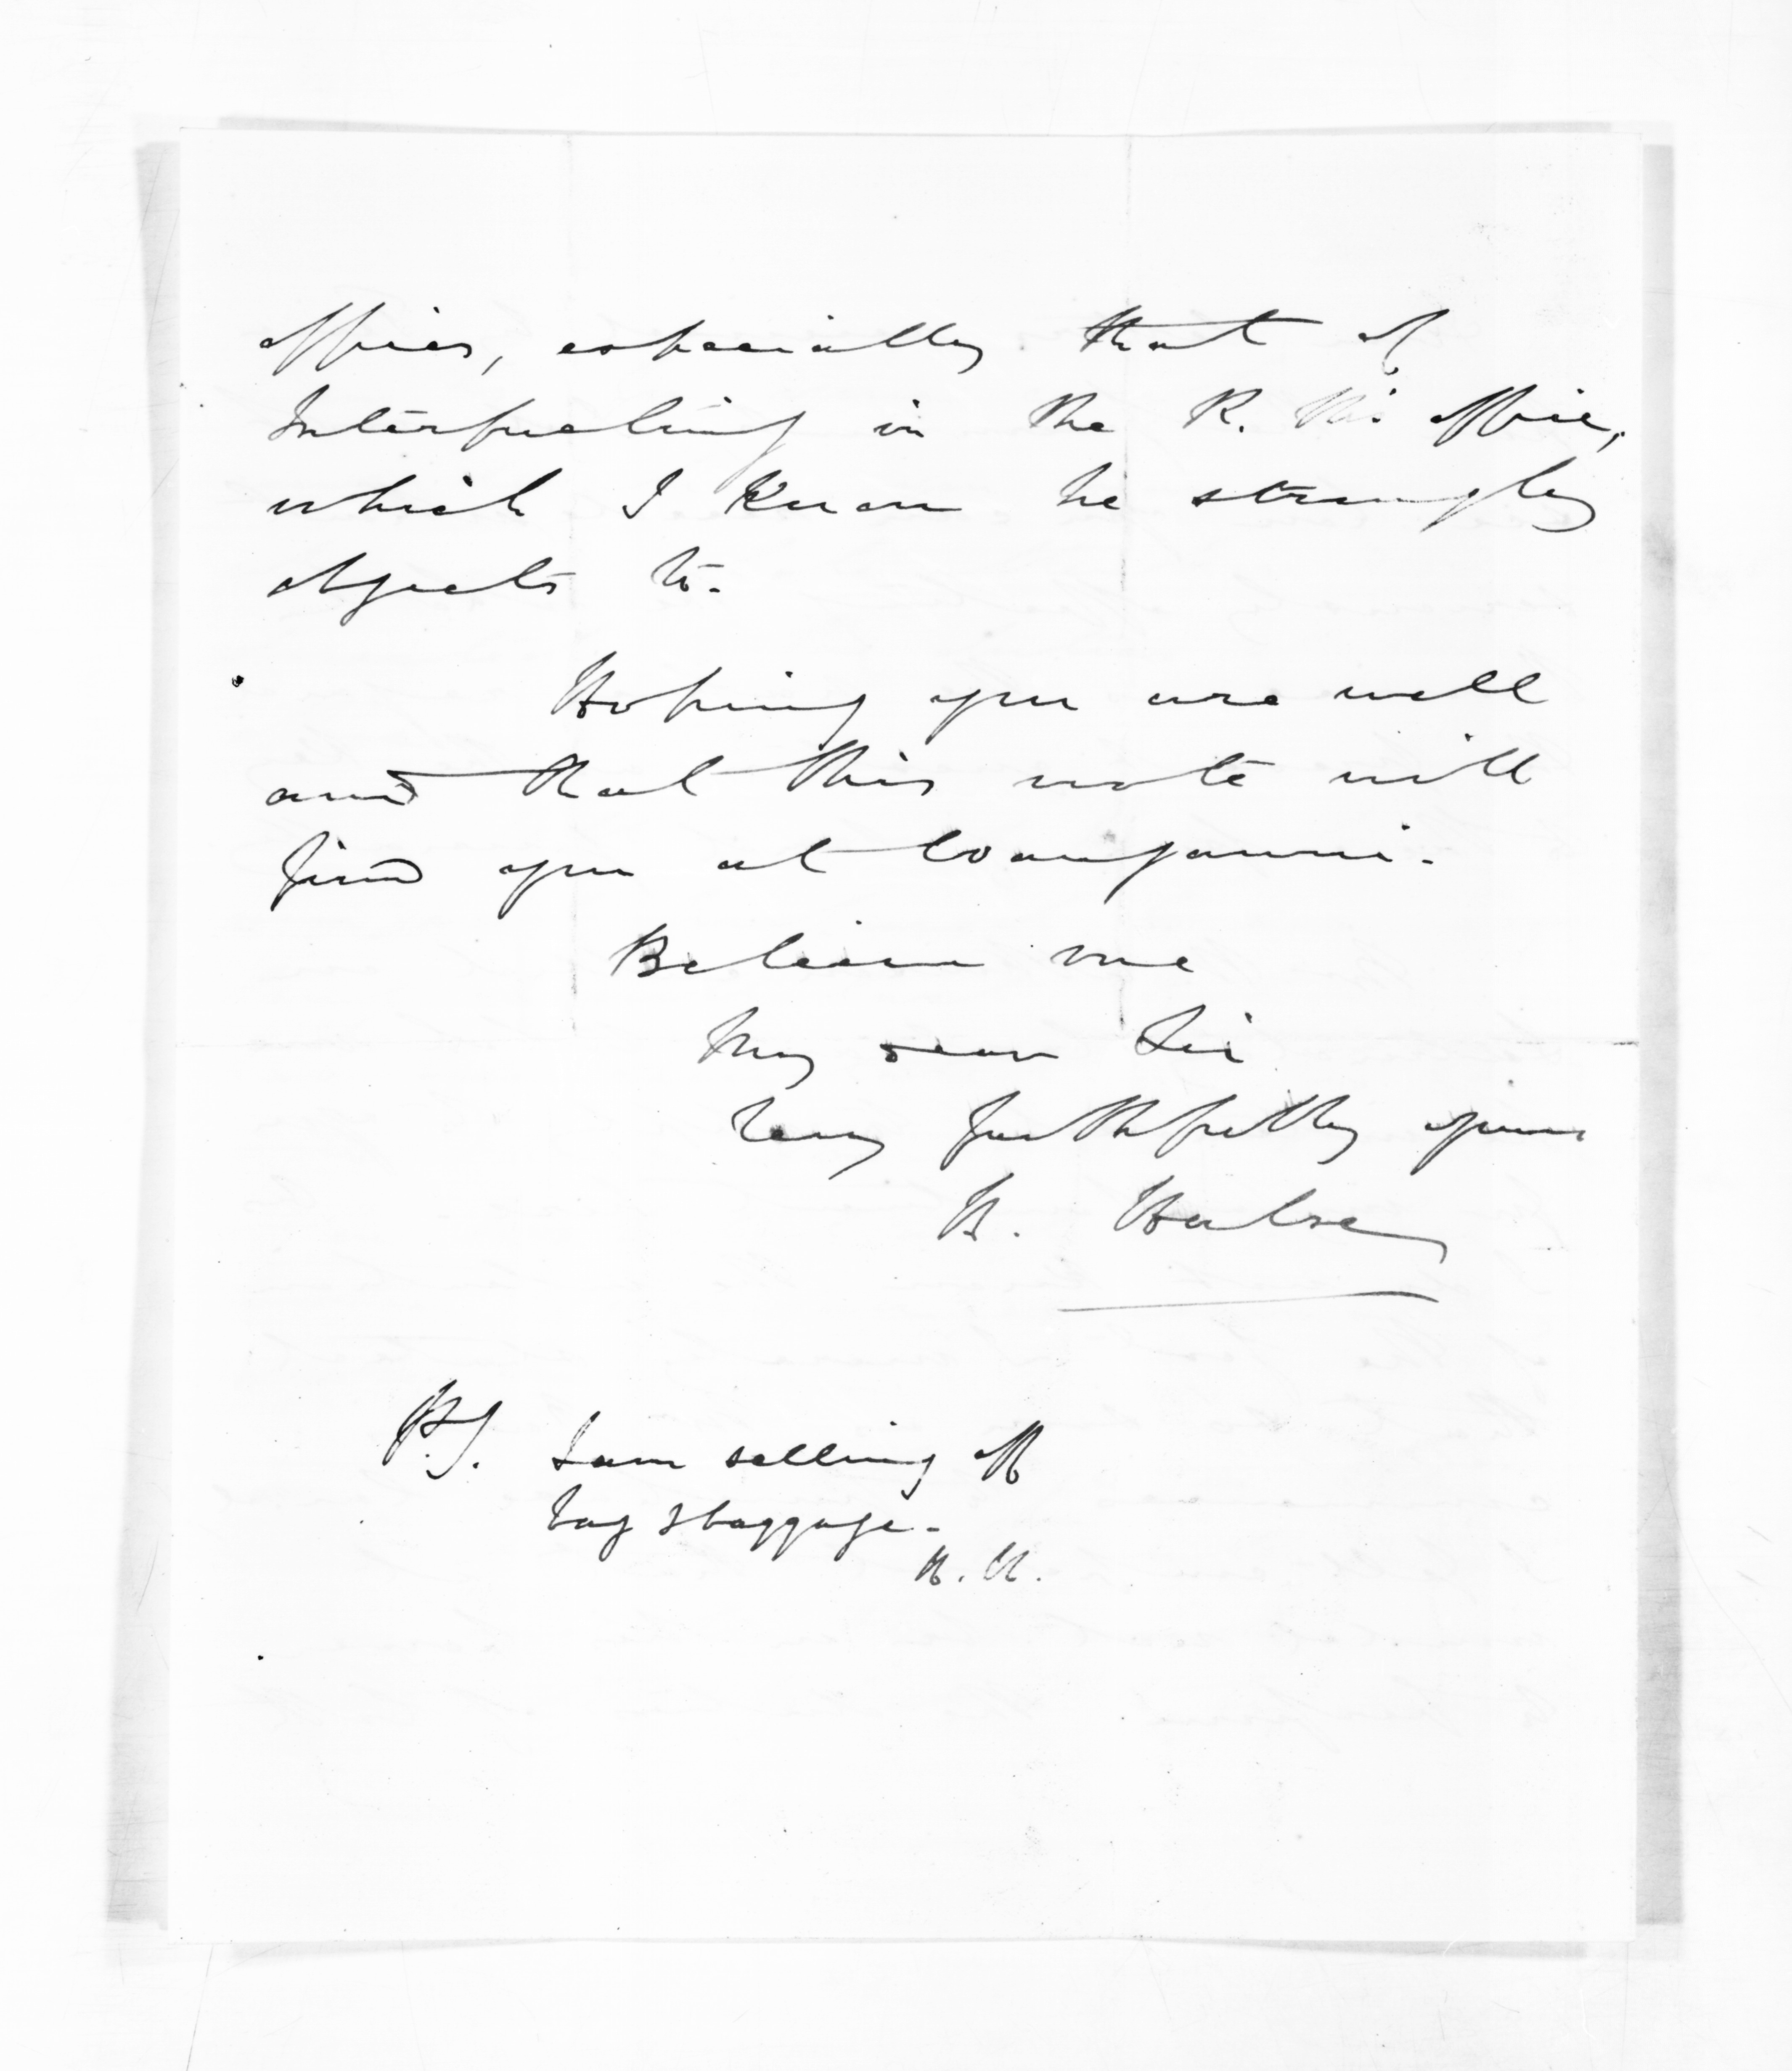 offices, especially that of
Interpreting in the R. M.'s office,
which I know he strongly
objects to.
Hoping you are well
and that this note will
find you at Wanganui.
Believe me
My dear Sir
Very faithfully yours
H. Halse
P.S. I am selling off
bag & baggage.
H. H.